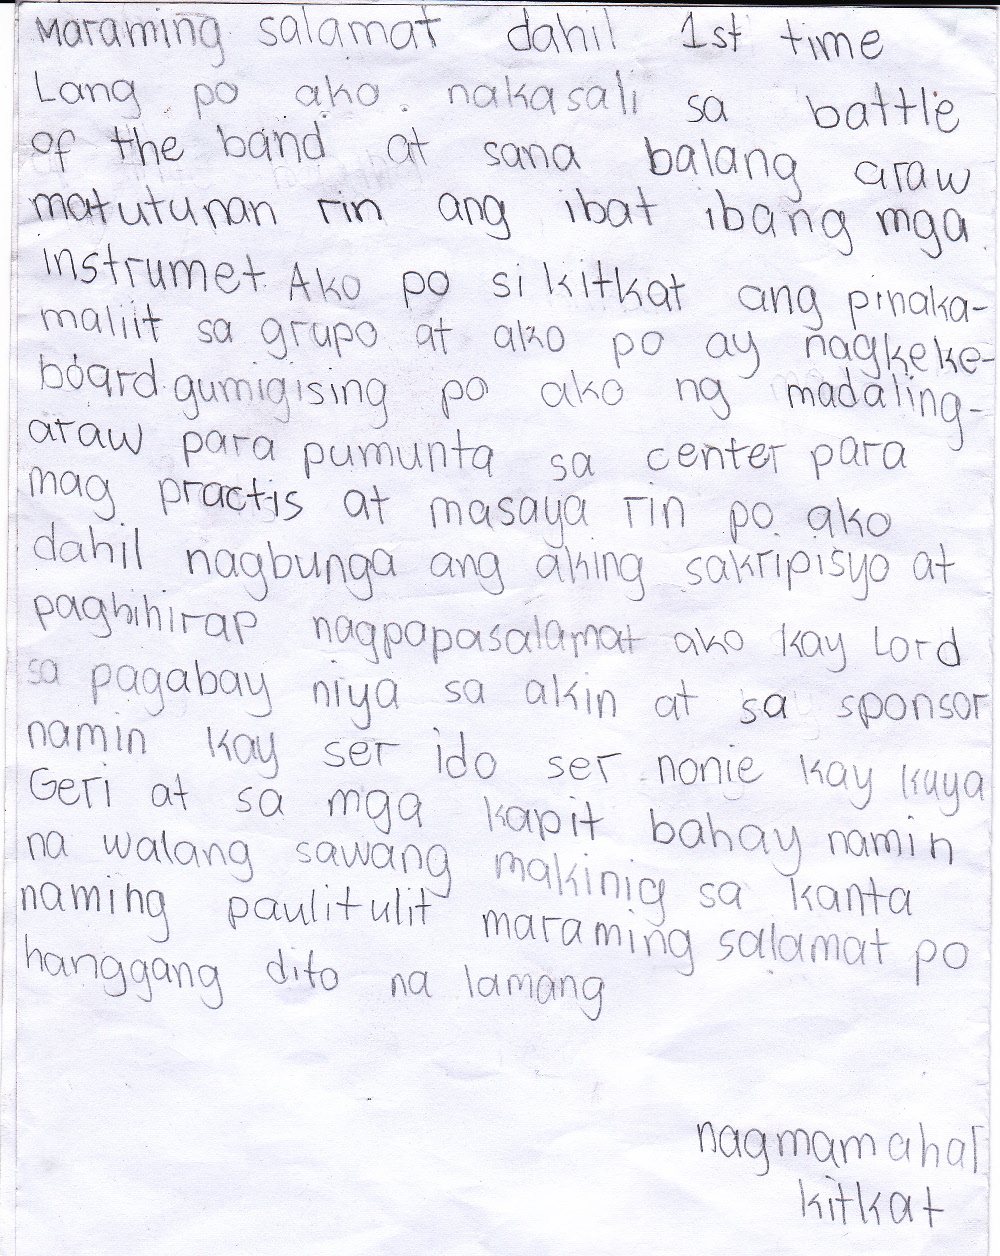 Maraming salamat dahil 1st time
Lang po ako. nakasali sa battle
of the band at sana balang araw
matutunan rin ang ibat ibang mga
instrumet. Ako po si kitkat ang pinaka-
maliit sa grupo at ako po ay nagkeke-
board. gumigising po ako ng madaling-
araw para pumunta sa center para
mag practis at masaya rin po ako
dahil nagbunga ang aking sakripisyo at
paghihirap nagpapasalamat ako kay Lord
sa pagabay niya sa akin at sa sponsor
namin kay ser ido ser nonie kay kuya
Geri at sa mga kapit bahay namin
na walang sawang makinig sa kanta
naming paulitulit maraming salamat po
hanggang dito na lamang
nagmamahal
kitkat